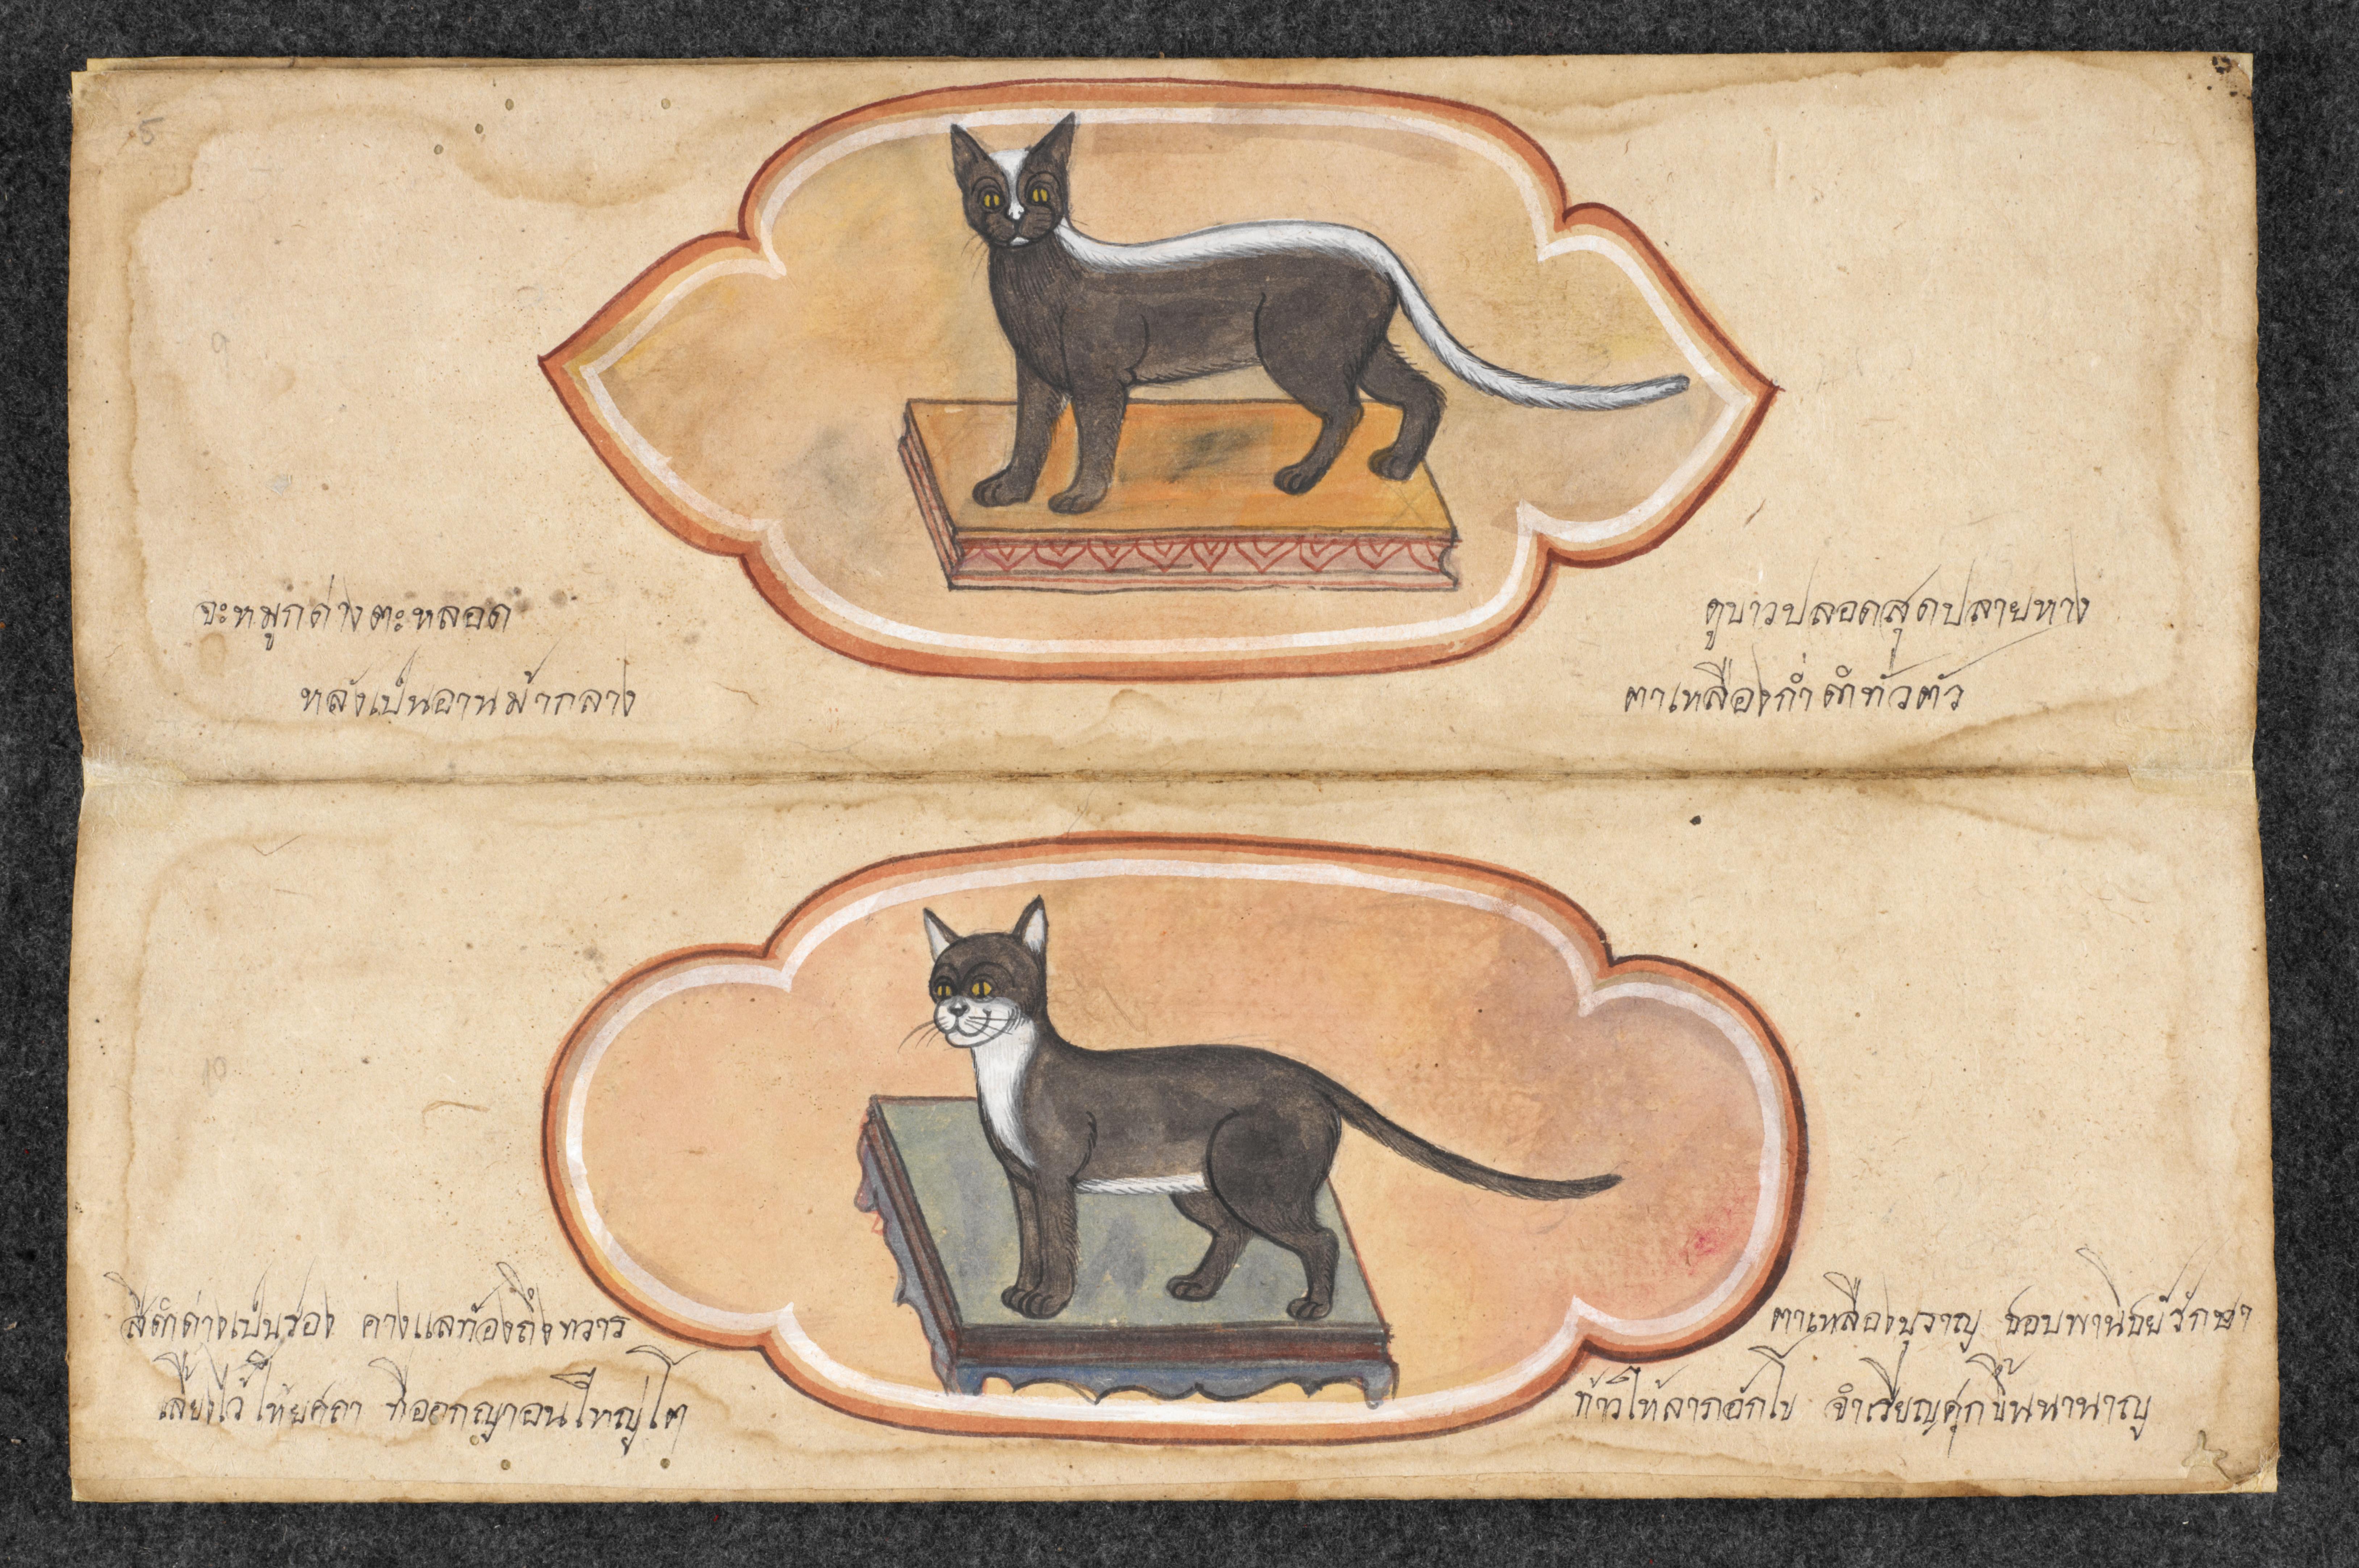 5
9
จะหมูกด่างตะหลอด
ตูขาวปลอดสุดปลายหาง
หลังเป็นอานม้ากลาง
ตาเหลืองก่ำดำทั่วตัว
10
สีดำด่างเป็นรอง คางแลท้องถึงทวาร
ตาเหลืองบุราญ ชอบพานิชย์รักษา
เลี้ยงไว้ให้ยศถา ที่ออกญาอนใหญ่โต
ก้าวให้ลาภอักโข จำเรียญศุกขึ้นนานาญ